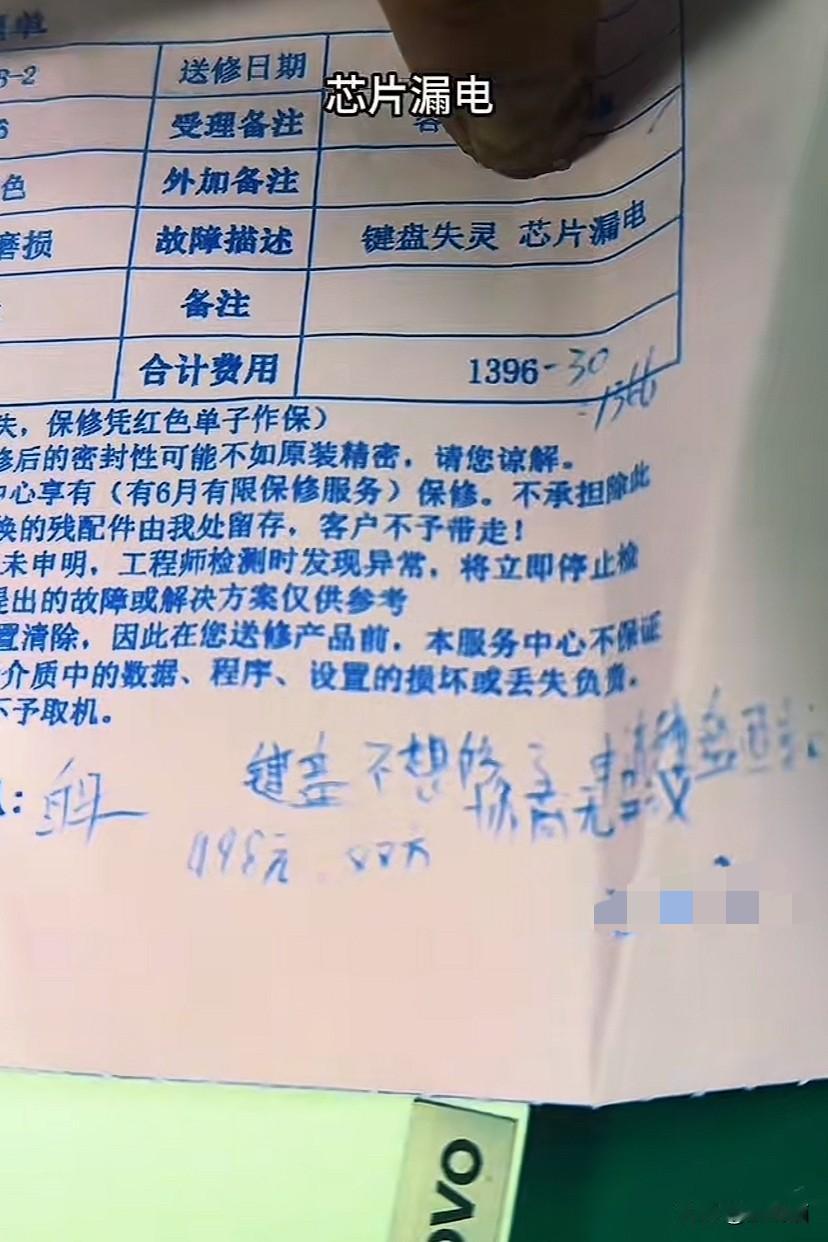 芯片漏电
3-2 送修日期
受理备注 客
色 外加备注
磨损 故障描述 键盘失灵 芯片漏电
备注
合计费用 1396-30
=1366
失，保修凭红色单子作保）
修后的密封性可能不如原装精密，请您谅解。
中心享有（有6月有限保修服务）保修。不承担除此
换的残配件由我处留存，客户不予带走！
未申明，工程师检测时发现异常，将立即停止检
提出的故障或解决方案仅供参考
置清除，因此在您送修产品前，本服务中心不保证
介质中的数据、程序、设置的损坏或丢失负责。
不予取机。
键盘不想修了
498元
ovo